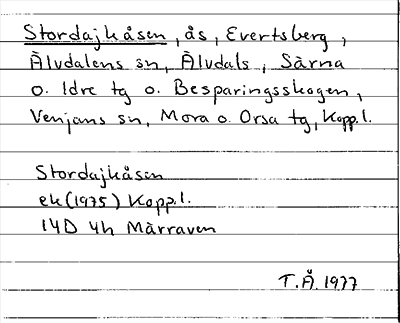 Stordajkåsen, ås, Evertsberg,
Älvdalens sn, Älvdals, Särna
o. Idre tg o. Besparingsskogen,
Venjans sn, Mora o. Orsa tg, Kopp.l.
Stordajkåsen
ek (1975) Kopp.l.
14D 4h Märraven
T.Å. 1977